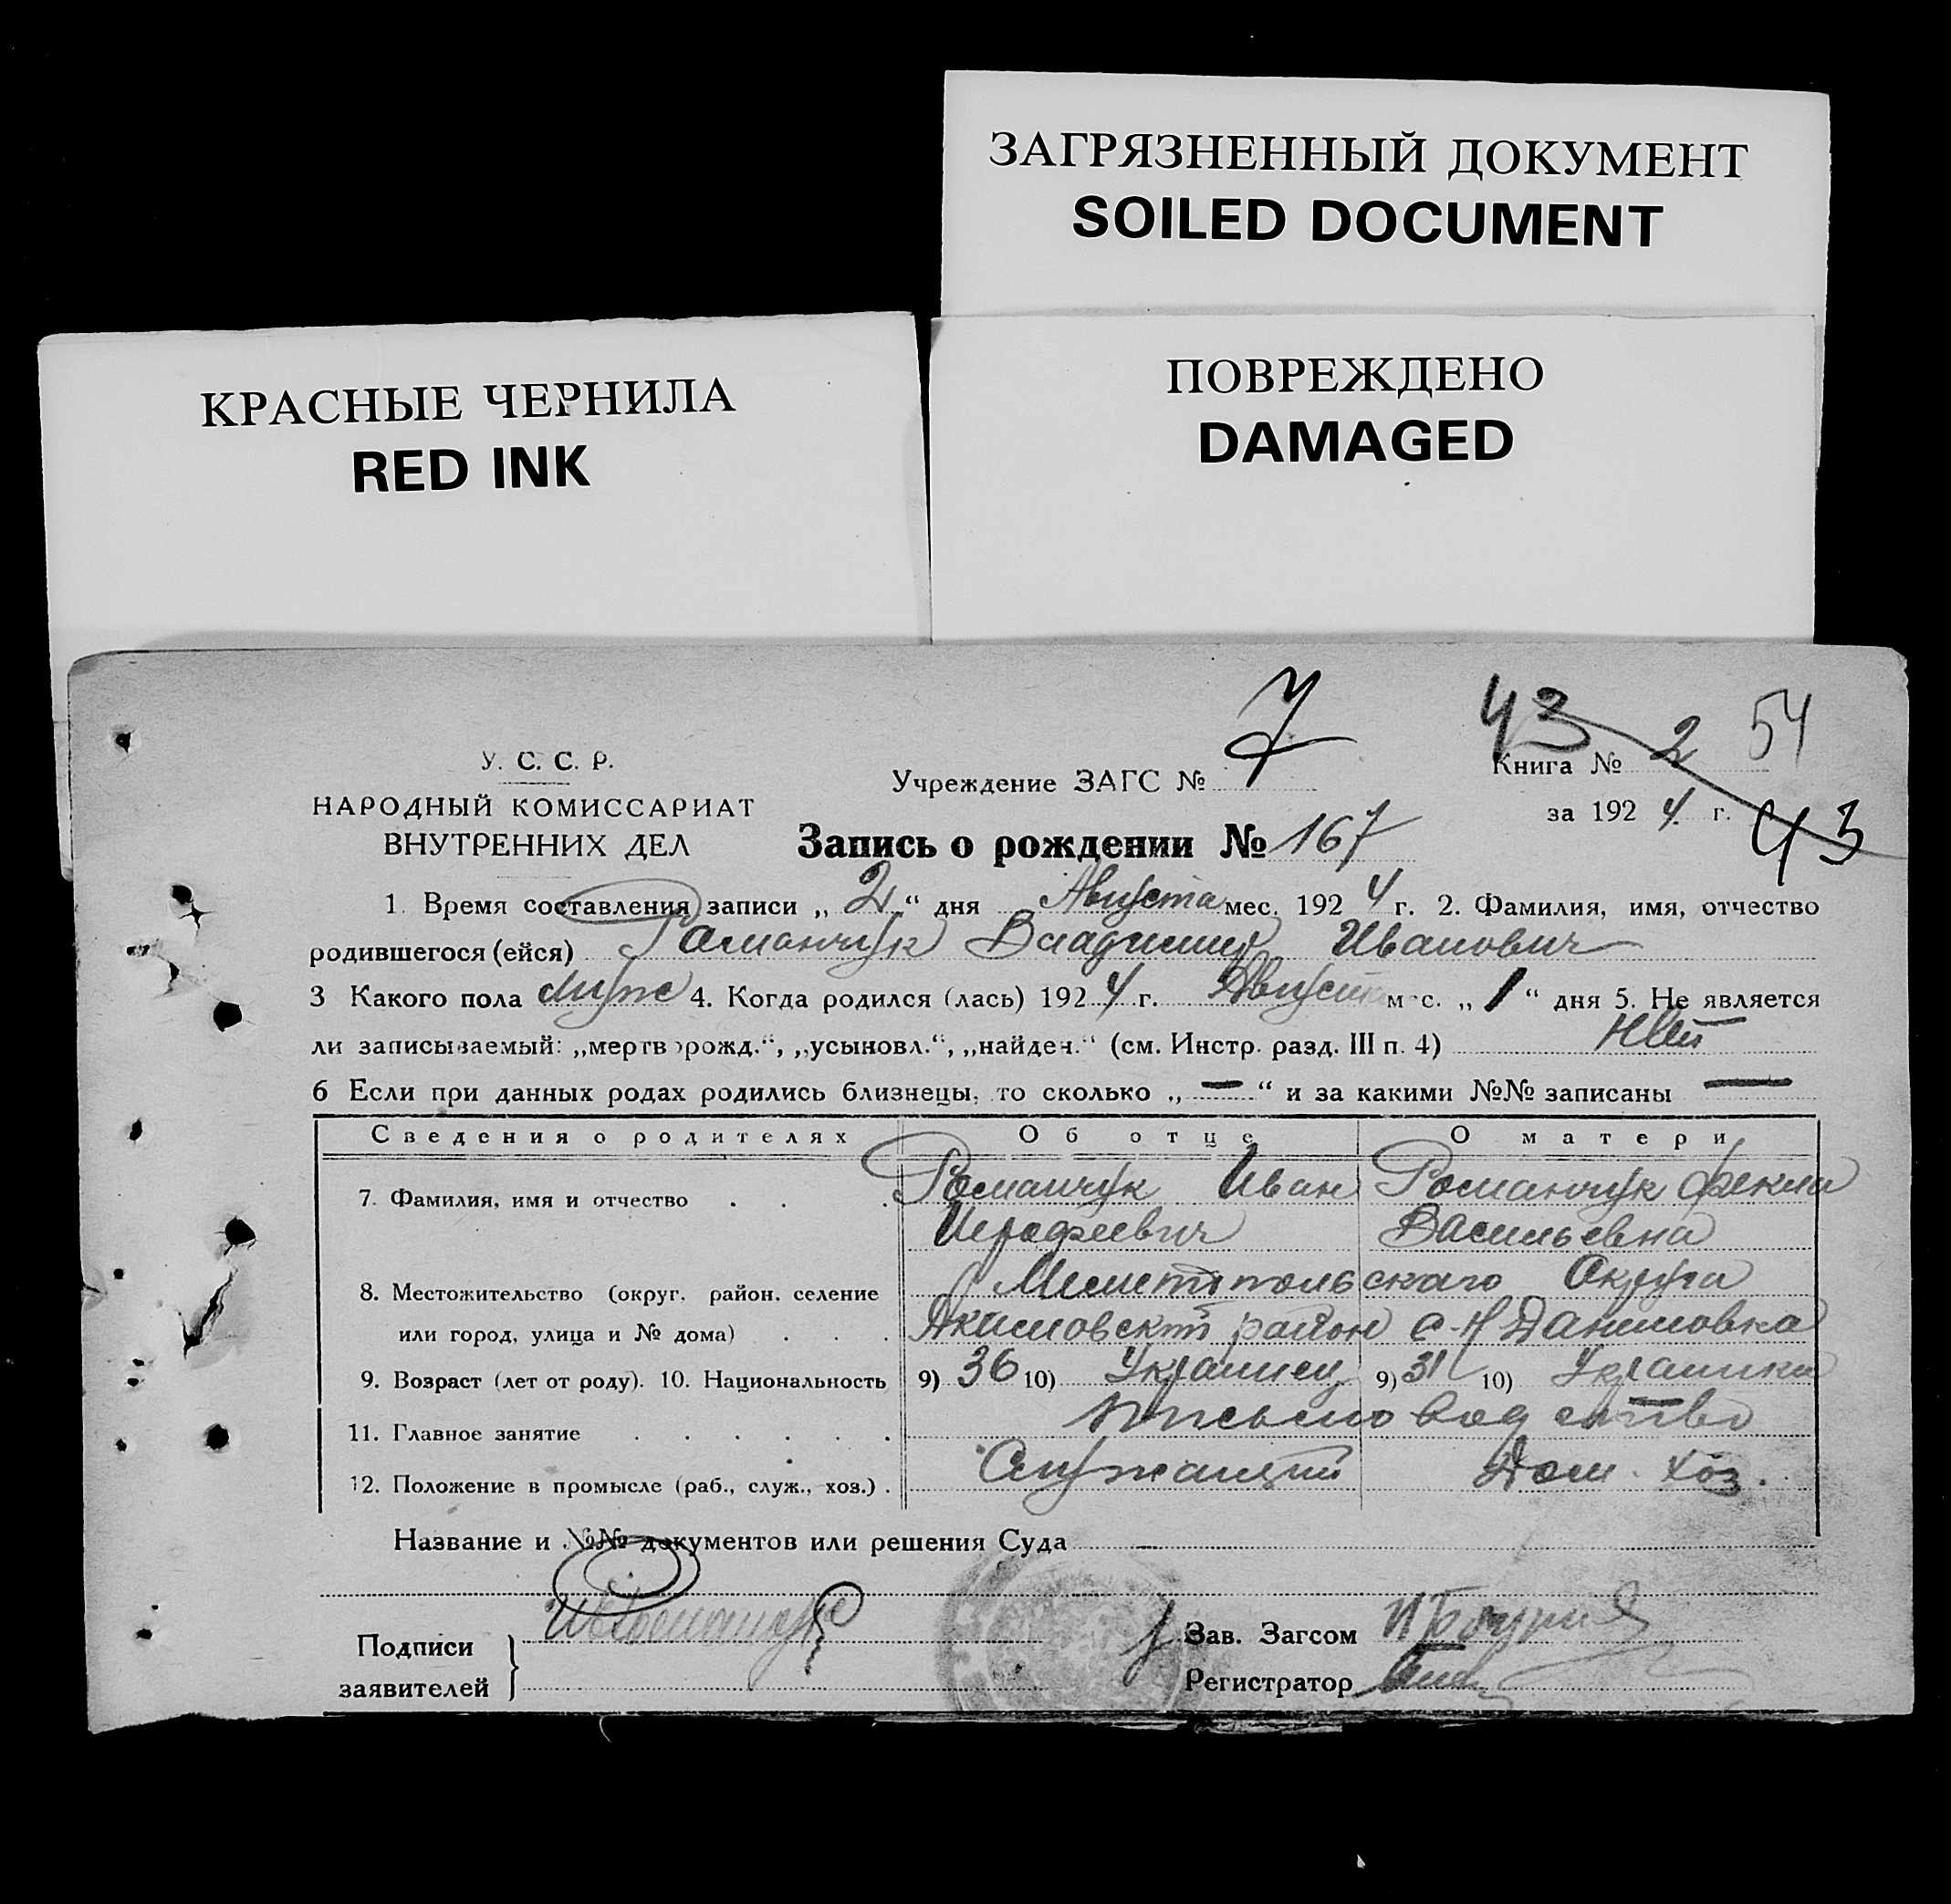 ЗАГРЯЗНЕННЫЙ ДОКУМЕНТ
SOILED DOCUMENT
КРАСНЫЕ ЧЕРНИЛА
RED INK
ПОВРЕЖДЕНО
DAMAGED
43 54
У. С. С. Р.
НАРОДНЫЙ КОМИССАРИАТ
ВНУТРЕННИХ ДЕЛ
Учреждение ЗАГС № 7
Книга № 2
за 1924 г. 43
Запись о рождении № 167
1. Время составления записи „2“ дня Августа мес. 1924 г. 2. Фамилия, имя, отчество
родившегося (ейся) Романчук Владимир Иванович
3 Какого пола муж 4. Когда родился (лась) 1924 г. Августа мес. „1“ дня 5. Не является
ли записываемый: „мертворожд.“, „усыновл.“, „найден.“ (см. Инстр. разд. III п. 4) Нет
6 Если при данных родах родились близнецы, то сколько „—“ и за какими №№ записаны —
Сведения о родителях Об отце О матери
7. Фамилия, имя и отчество . . . Романчук Иван Романчук Фекла
Васильевна
8. Местожительство (округ. район. селение Мелитопольского Округа
или город, улица и № дома) . . . Акимовский район с. Н Даниловка
9. Возраст (лет от роду). 10. Национальность 9) 36 10) Украинец 9) 31 10) Украинка
11. Главное занятие . . . . . . Письмоводство
12. Положение в промысле (раб., служ., хоз.) . Служащий Дом. хоз.
Название и №№ документов или решения Суда —
Подписи
заявителей
Зав. Загсом
Регистратор